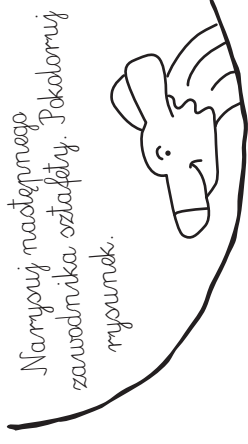 Narysuj następnego
zawodnika sztafety. Pokoloruj
rysunek.